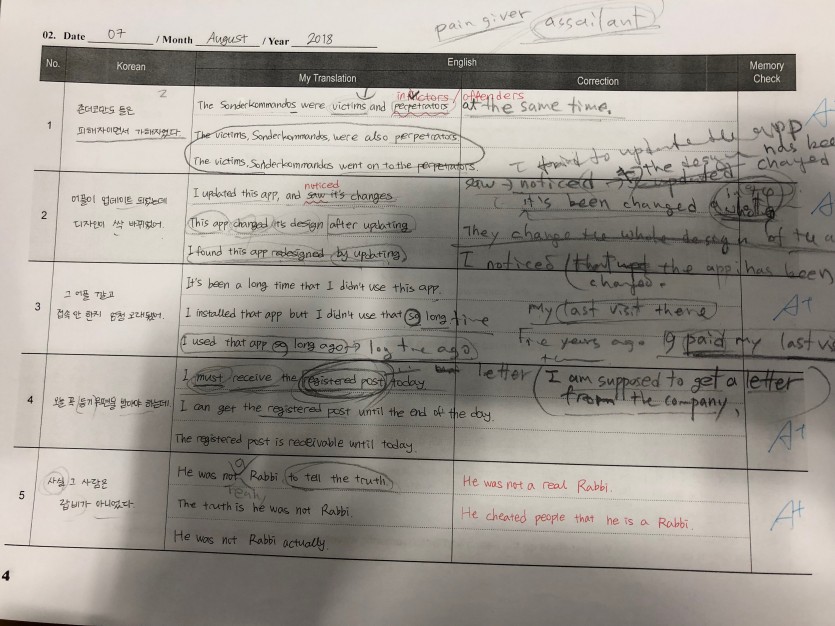 pain giver assailant
02. Date 07 / Month August / Year 2018
No. Korean English Memory Check
My Translation Correction
2
inflictors / offenders
1 존더코만도 들은 The Sonderkommandos were victims and perpetrators at the same time.
피해자이면서 가해자였다. The victims, Sonderkommandos, were also perpetrators.
The victims, Sonderkommandos went on to the perpetrators.
I tried to update the app
the design has been changed
noticed saw → noticed → updated
2 어플이 업데이트 되었는데 I updated this app, and saw it's changes.
디자인이 싹 바뀌었어. This app changed its design after updating. it's been changed
They change the whole design of the
I found this app redesigned by updating. I noticed that the app has been
changed.
3 그 어플 깔고 It's been a long time that I didn't use this app.
접속 안 한지 엄청 오래됐어. I installed that app but I didn't use that so long time my last visit there
I used that app so long ago → long time ago Five years ago I paid my last
4 오늘 꼭 등기우편을 받아야 하는데. I must receive the registered post today letter (I am supposed to get a letter
from the company.
I can get the registered post until the end of the day.
The registered post is receivable until today.
A+
5 사실 그 사람은 He was not a Rabbi, to tell the truth. He was not a real Rabbi.
랍비가 아니었다. The truth is he was not Rabbi. He cheated people that he is a Rabbi.
A+
He was not Rabbi actually.
4